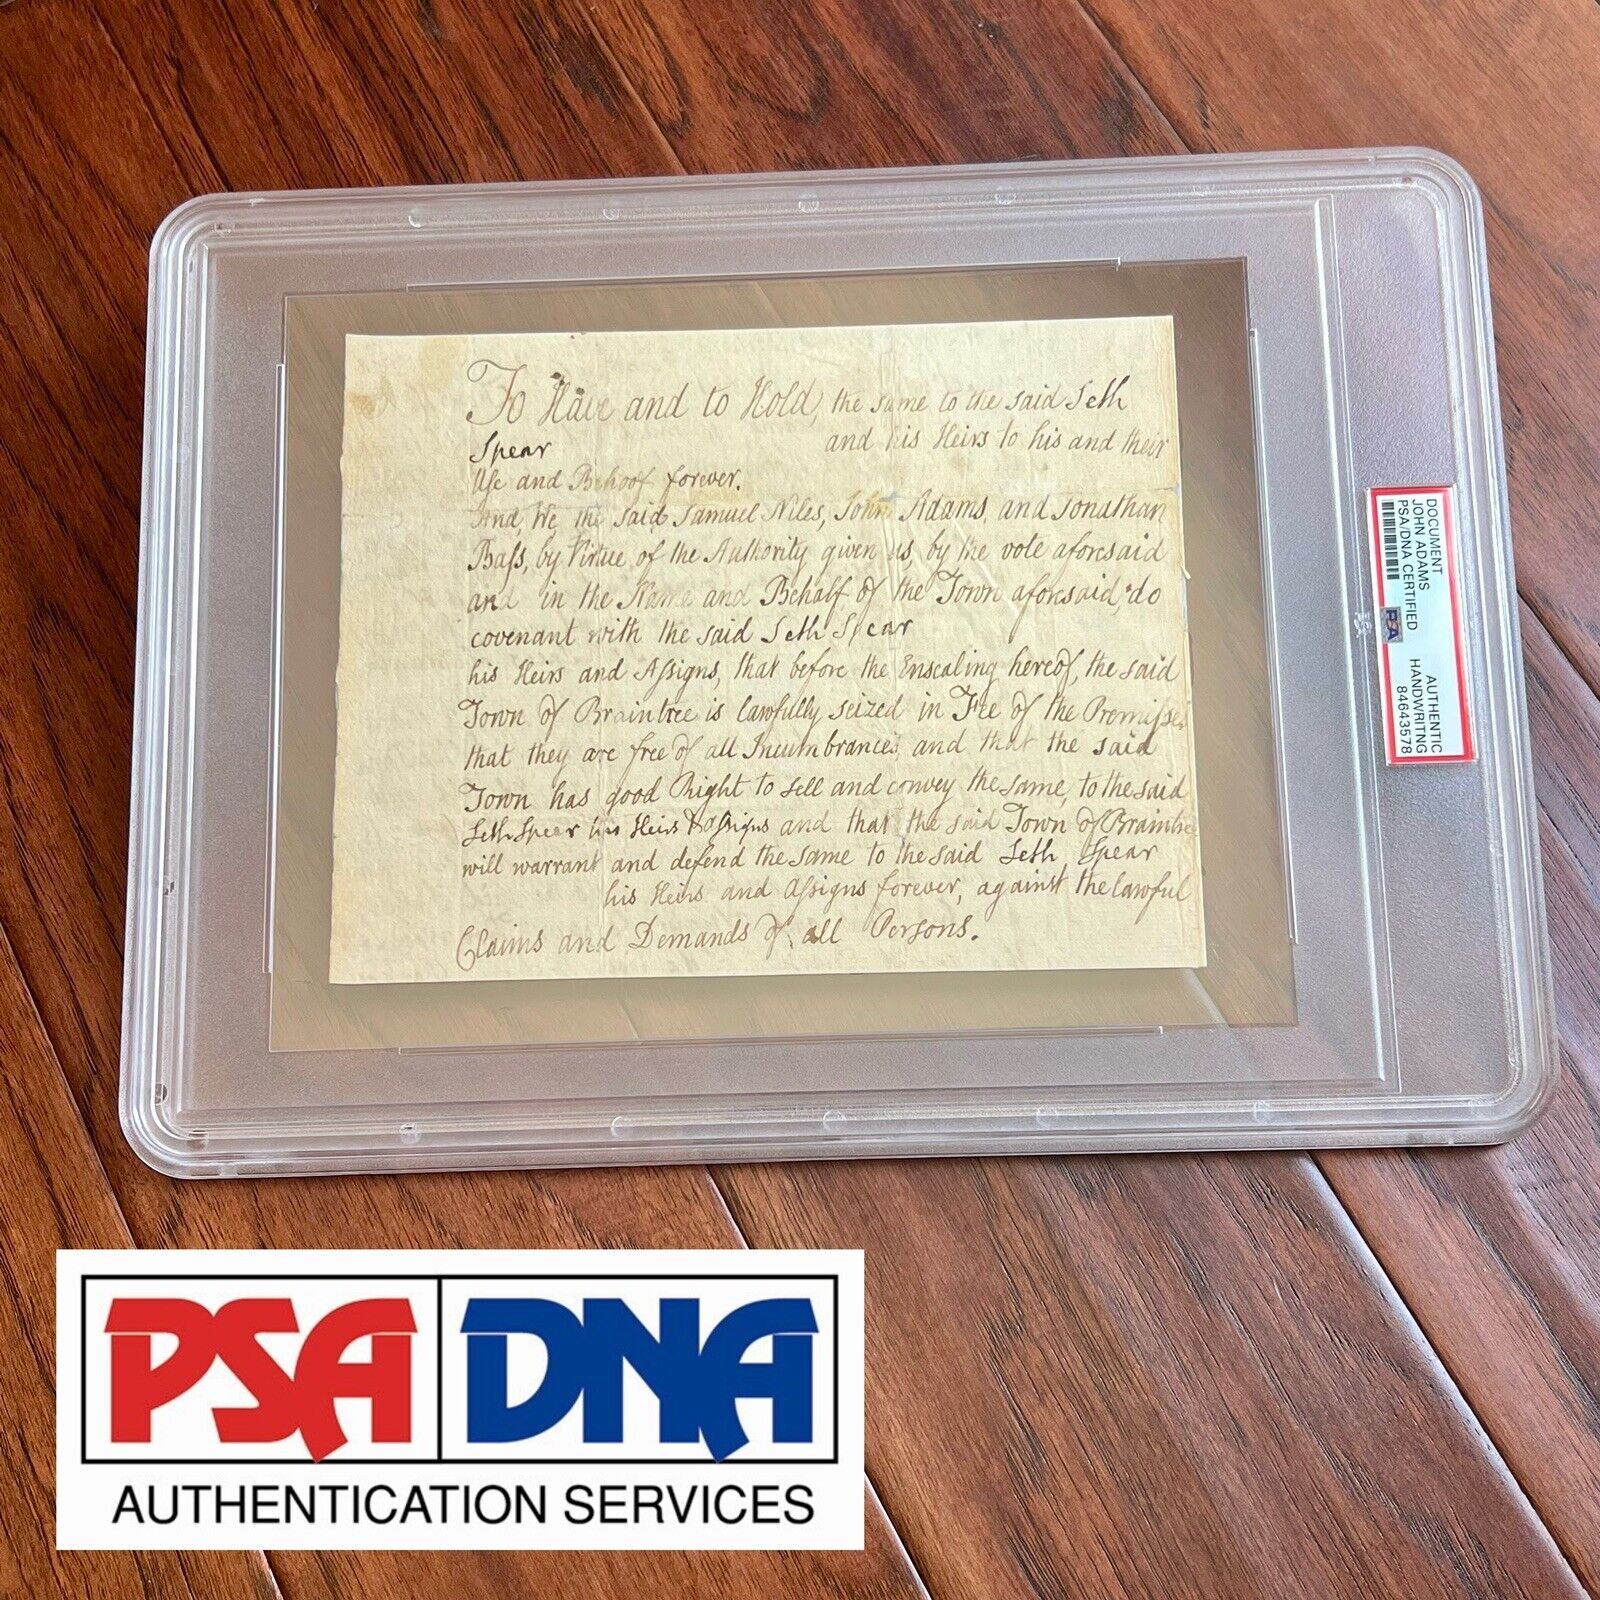 To Have and to Hold, the same to the said Seth
Spear and his Heirs to his and their
Use and Behoof forever.
And, We the said Samuel Niles, John Adams, and Jonathan
Bass, by Virtue of the Authority given us by the vote aforesaid
and in the Name and Behalf of the Town aforesaid, do
covenant with the said Seth Spear
his Heirs and Assigns, that before the Ensealing hereof, the said
Town of Braintree is lawfully seized in Fee of the Premisses
that they are free of all Incumbrances, and that the said
Town has good Right to sell and convey the same, to the said
Seth Spear his Heirs & assigns and that the said Town of Braintree
will warrant and defend the same to the said Seth Spear
his Heirs and Assigns forever, against the lawful
Claims and Demands of all Persons.
DOCUMENT
JOHN ADAMS
PSA/DNA CERTIFIED
AUTHENTIC
HANDWRITNG
84643578
PSA
PSA DNA
AUTHENTICATION SERVICES